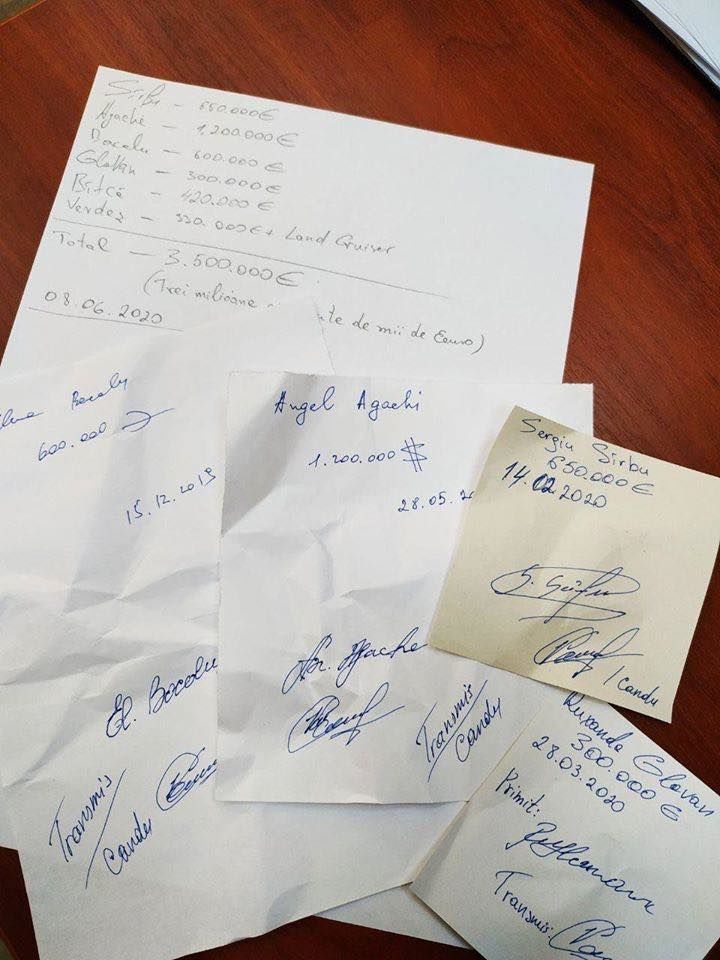 Sîrbu – 650.000€
Agachi – 1,200.000€
Bacalu – 600.000€
Glavan – 300.000€
Bîtcă – 420.000€
Verdeș – 330.000€ + Land Cruiser
Total – 3.500.000€
(Trei milioane de mii de Euro)
08.06.2020
600.000
15.12.2019
El. Bacalu
Transmis
Candu
Angel Agachi
1.200.000 $
28.05.
Transmis
Candu
Sergiu Sîrbu
650.000€
14.02.2020
/ Candu
Ruxanda Glavan
300.000€
28.03.2020
Primit:
Transmis: